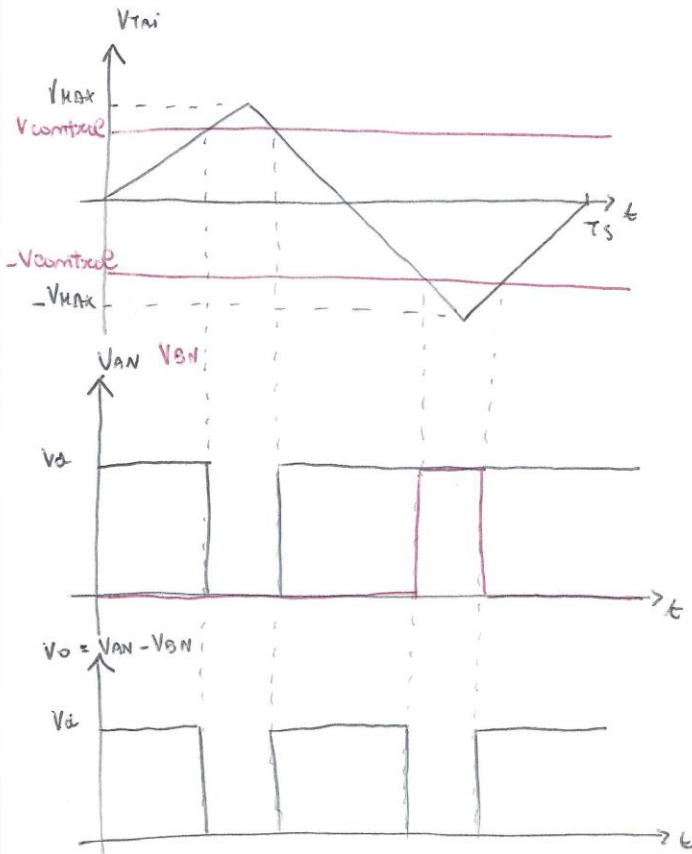 VTRi
VMAX
Vcontrol
t
Ts
-Vcontrol
-VMAX
VAN VBN
Vd
t
Vo = VAN - VBN
Vd
t